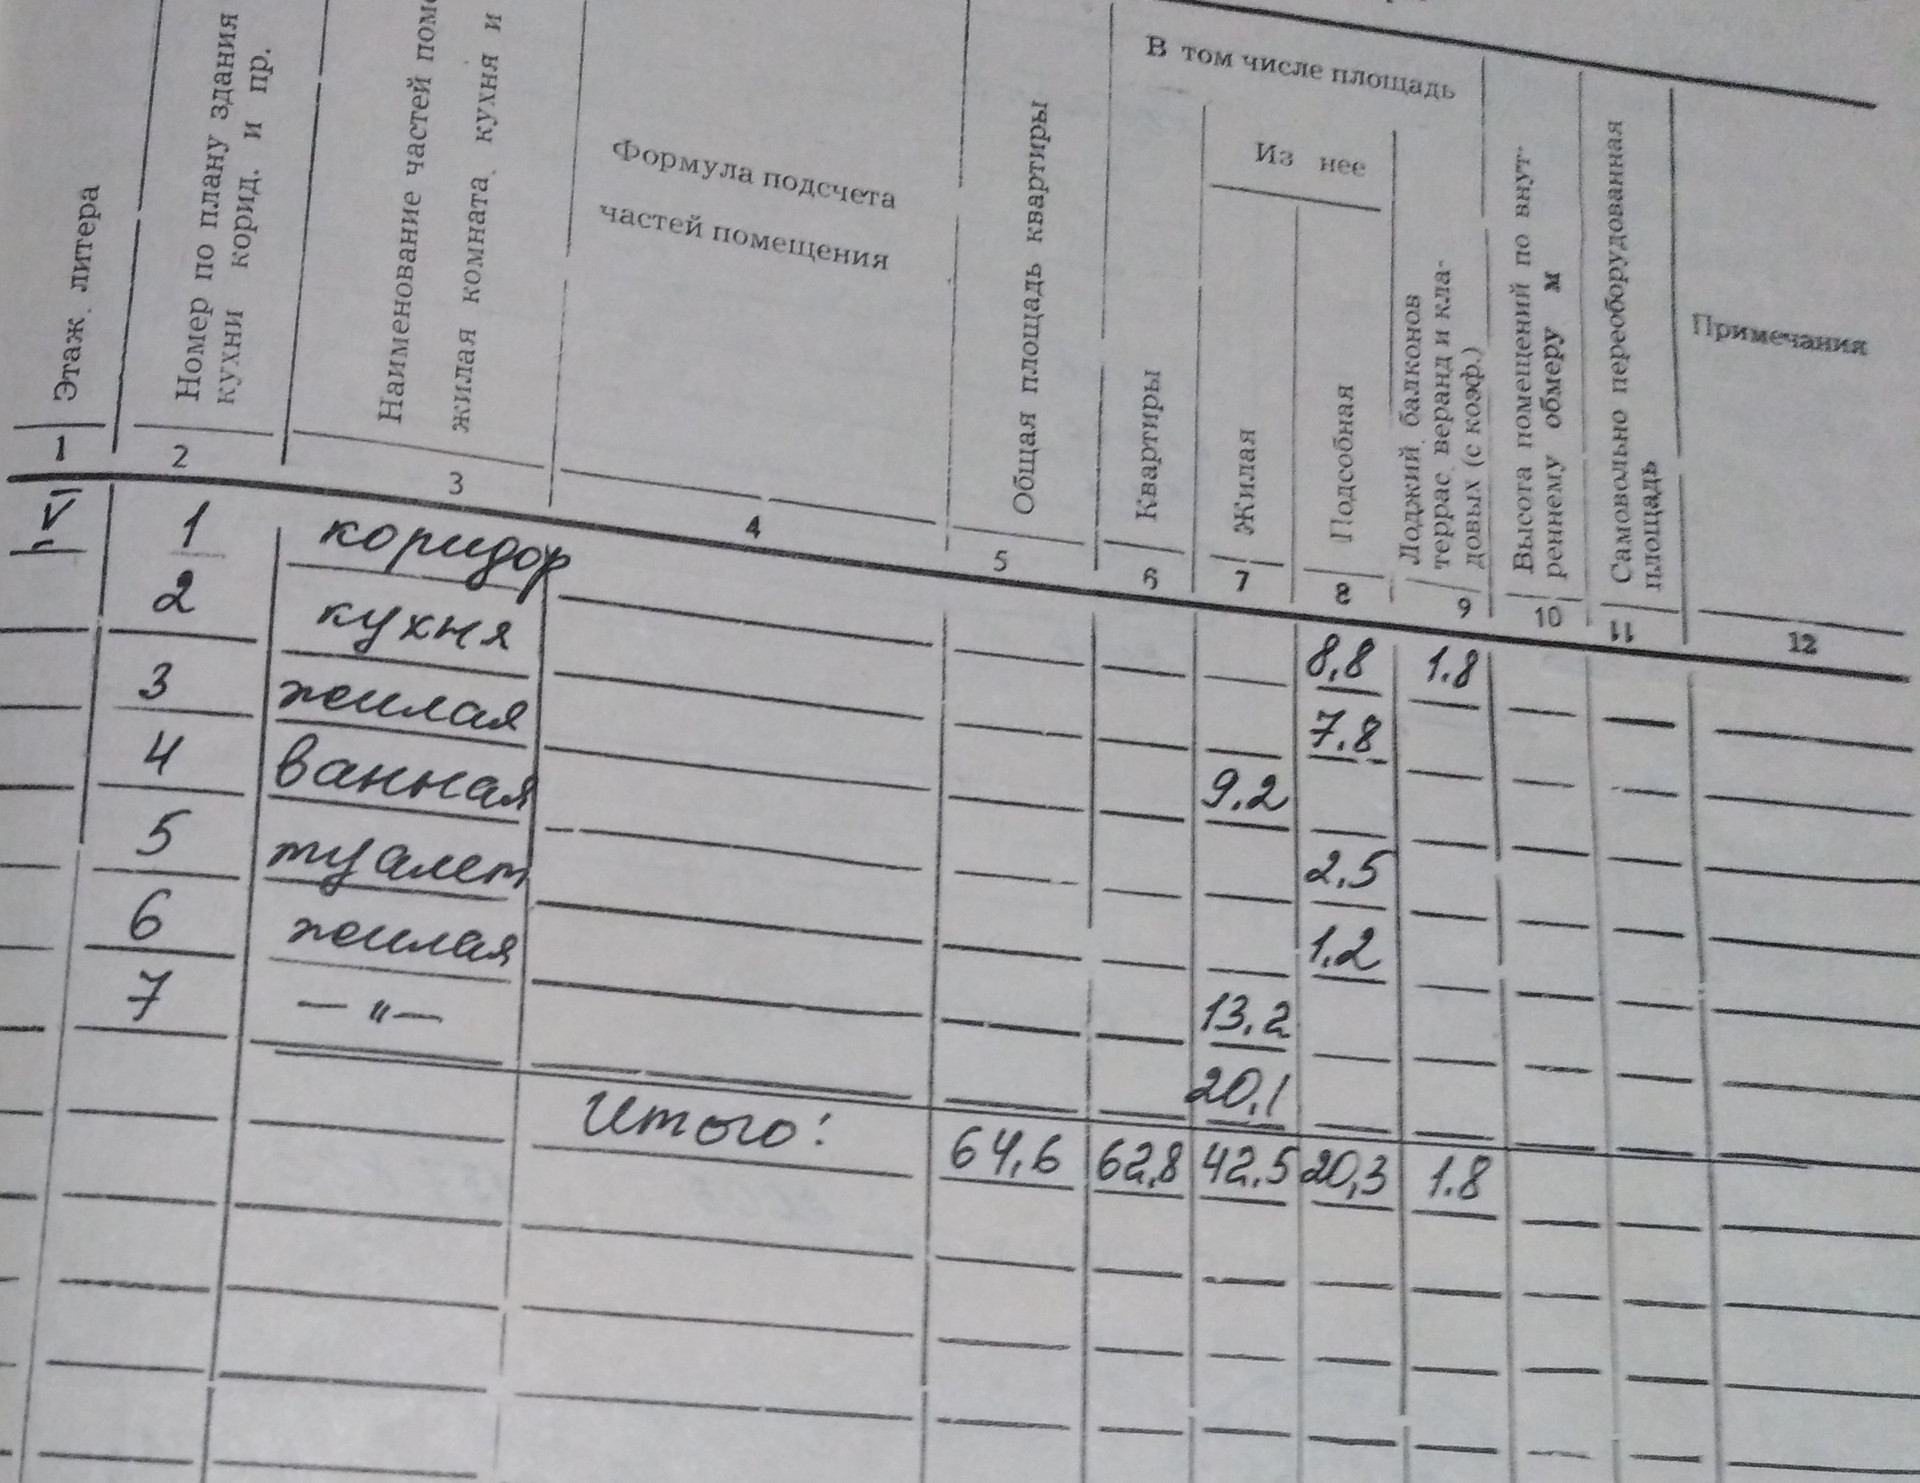 Этаж, литера
Номер по плану здания
кухни корид. и пр.
Наименование частей
жилая комната, кухня и
Формула подсчета
частей помещения
Общая площадь квартиры
В том числе площадь
Квартиры
Из нее
Жилая
Подсобная
Лоджий, балконов
террас, веранд и кла-
довых (с коэф.)
Высота помещений по внут-
реннему обмеру м
Самовольно переоборудованная
площадь
Примечания
1 2 3 4 5 6 7 8 9 10 11 12
V 1 коридор 8,8 1.8
2 кухня 7.8
3 жилая 9.2
4 ванная 2.5
5 туалет 1.2
6 жилая 13.2
7 — „ — 20,1
Итого: 64,6 62,8 42,5 20,3 1.8